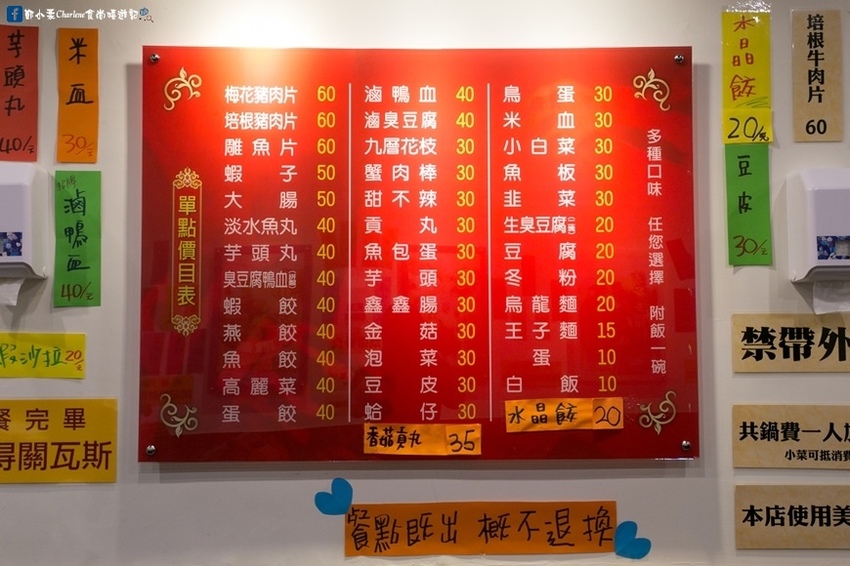 鄧小柔Charlene食尚嬉遊記
芋頭丸
40/元
米血
30/元
滷鴨血
40/元
沙拉 20元
餐完畢
得關瓦斯
單點價目表
梅花豬肉片 60
培根豬肉片 60
雕魚片 60
蝦子 50
大腸 50
淡水魚丸 40
芋頭丸 40
臭豆腐鴨血 40
蝦餃 40
燕餃 40
魚餃 40
高麗菜 40
蛋餃 40
滷鴨血 40
滷臭豆腐 40
九層花枝 40
蟹肉棒 30
甜不辣 30
貢丸 30
魚包蛋 30
芋頭 30
鑫鑫腸 30
金菇 30
泡菜 30
豆皮 30
蛤仔 30
香菇貢丸 35
鳥蛋 30
米血 30
小白菜 30
魚板 30
韭菜 30
生臭豆腐 20
豆腐 20
冬粉 20
烏龍麵 20
王子麵 15
蛋 10
白飯 10
水晶餃 20
多種口味 任您選擇 附飯一碗
餐點既出 概不退換
水晶餃
20/元
豆皮
30/元
培根牛肉片
60
禁帶外
共鍋費一人
小菜可抵消費
本店使用美